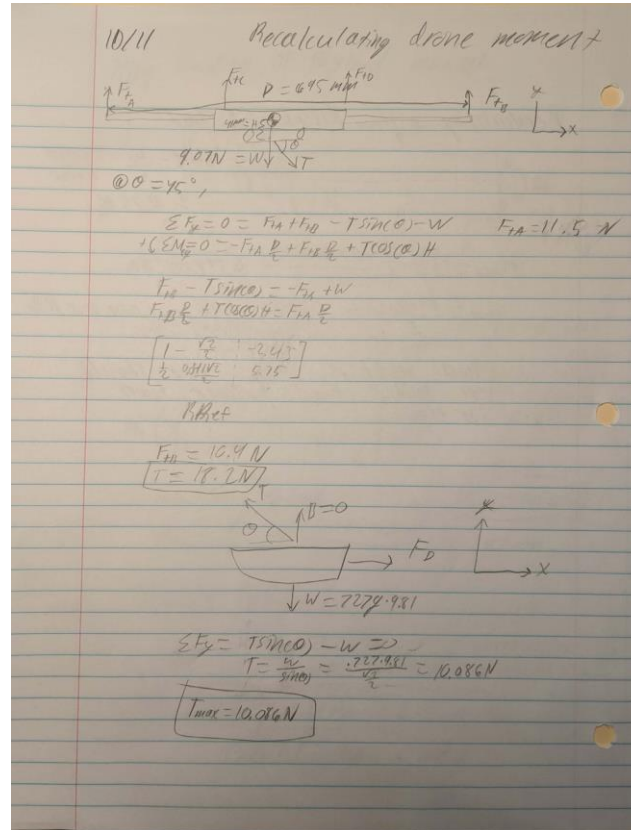 10/11 Recalculating drone moment
F_tA F_tC D = 695 mm F_tD F_tB
y
x
9.07N = W T
θ
@ θ = 45°,
ΣF_y = 0 = F_tA + F_tB - T sin(θ) - W F_tA = 11.5 N
= 0 = -F_tA D/2 + F_tB D/2 + T cos(θ) H
F_tB - T sin(θ) = -F_tA + W
F_tB D/2 + T cos(θ) H = F_tA D/2
[1 - √2/2 -2.43
5.75]
RRef
F_tB = 10.4 N
T = 18.2N
T B=0 y
θ F_D
x
W = 727g·9.81
ΣF_y = T sin(θ) - W = 0
T = W/sin(θ) = .727·9.81/(√2/2) = 10.086N
T_max = 10.086N